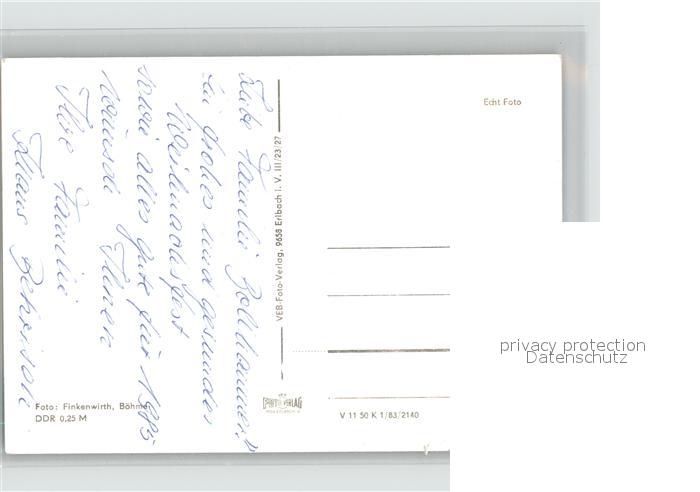 Liebe Familie
Ein frohes und gesundes
Weihnachtsfest
sowie alles gute für 1985
wünscht Ihnen
Ihre Familie
VEB-Foto-Verlag, 9658 Erlbach i. V. III/23/27
Echt Foto
Foto: Finkenwirth, Böhme
DDR 0,25 M
FOTO VERLAG
V 11 50 K 1/83/2140
privacy protection
Datenschutz